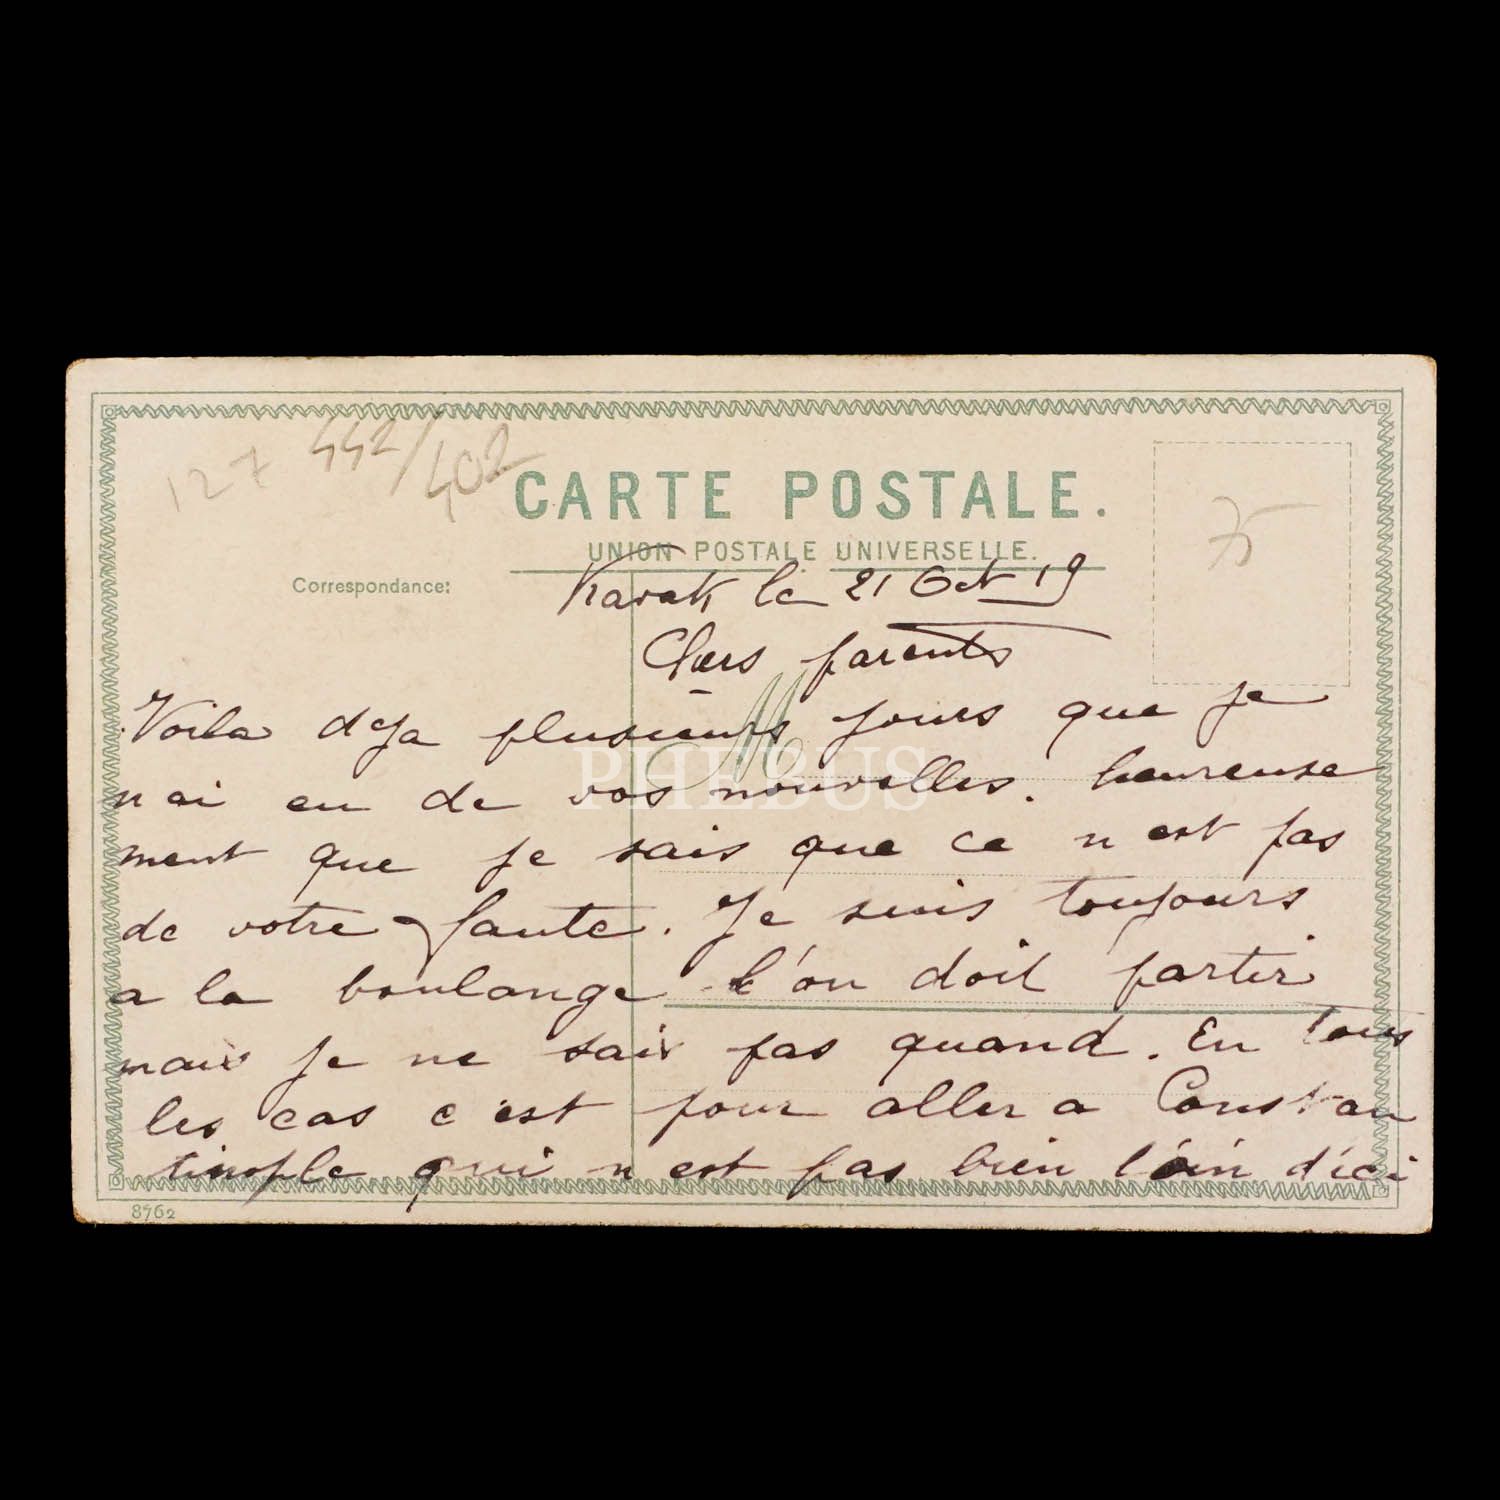 127 442/402
CARTE POSTALE.
UNION POSTALE UNIVERSELLE.
75
Correspondance:
Karak le 21 Oct 19
Chers parents
M
PHEBUS
Voila deja plusieurs jours que je
n ai eu de vos nouvelles. heureuse
ment que je sais que ce n est pas
de votre faute. Je suis toujours
a la boulange l'on doit partir
mais je ne sais pas quand. En tous
les cas c'est pour aller a Constan
tinople qui n est pas bien loin d'ici
8762